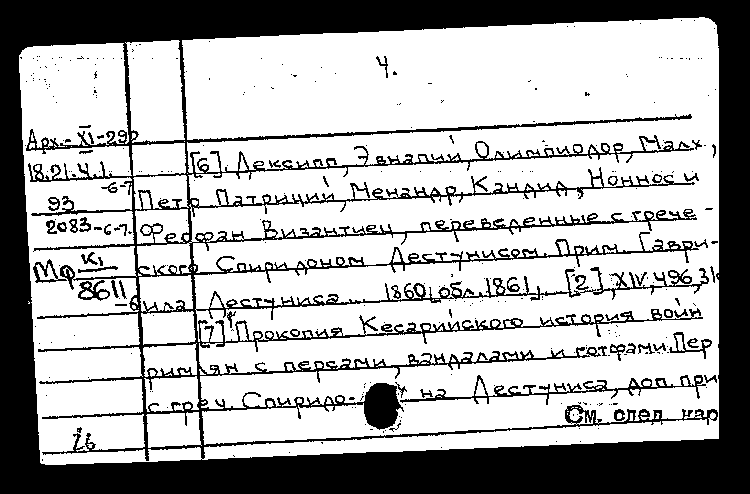 4.
Арх.-XI-292
18.21.4.1. [6]. Дексипп, Эвнапий, Олимпиодор, Малх,
93 -6-7 Петр Патриций, Менандр, Кандид, Ноннос и
2083-6-7. Феофан Византиец, переведенные с грече-
Мф К1/8611 -6 ского Спиридоном Дестунисом. Прим. Гаври-
ила Дестуниса... 1860/обл. 1861/. [2], XIV, 496, 31с
[7] Прокопия Кесарийского история войн
римлян с персами, вандалами и готфами. Пер
с греч. Спиридо- на Дестуниса, доп. при
См. след кар
26